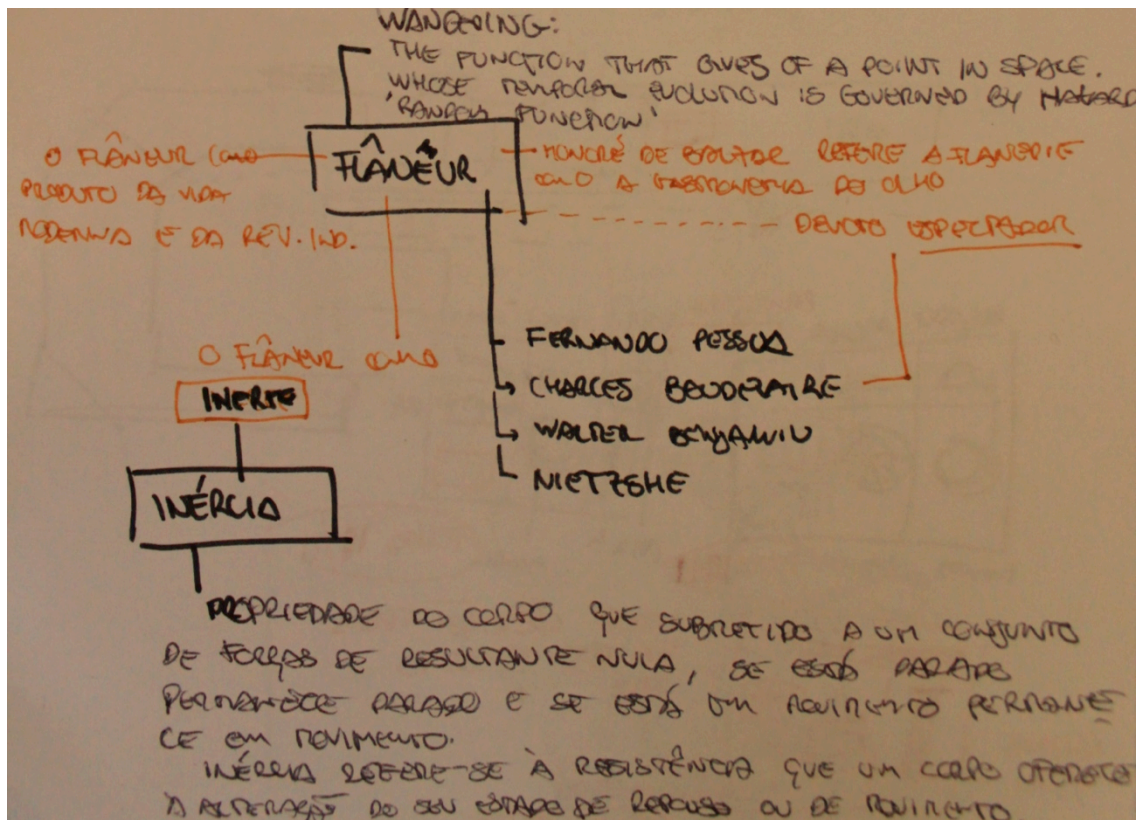 WANDERING:
THE FUNCTION THAT GIVES OF A POINT IN SPACE.
WHOSE TEMPORAL EVOLUTION IS GOVERNED BY HAZARD
'RANDOM FUNCTION'
FLÂNEUR
O FLÂNEUR COMO
PRODUTO DA VIDA
MODERNA E DA REV. IND.
HONORÉ DE BALZAC REFERE A FLANERIE
COMO A GASTRONOMIA DO OLHO
DEVOTO ESPECTADOR
FERNANDO PESSOA
O FLÂNEUR COMO
CHARLES BOUDELAIRE
INERTE
WALTER BENJAMIN
NIETZSHE
INÉRCIA
PROPRIEDADE DO CORPO QUE SUBMETIDO A UM CONJUNTO
DE FORÇAS DE RESULTANTE NULA, SE ESTÁ PARADO
PERMANECE PARADO E SE ESTÁ EM MOVIMENTO PERMANE
CE EM MOVIMENTO.
INÉRCIA REFERE-SE À RESISTÊNCIA QUE UM CORPO OFERECE
À ALTERAÇÃO DO SEU ESTADO DE REPOUSO OU DE MOVIMENTO.